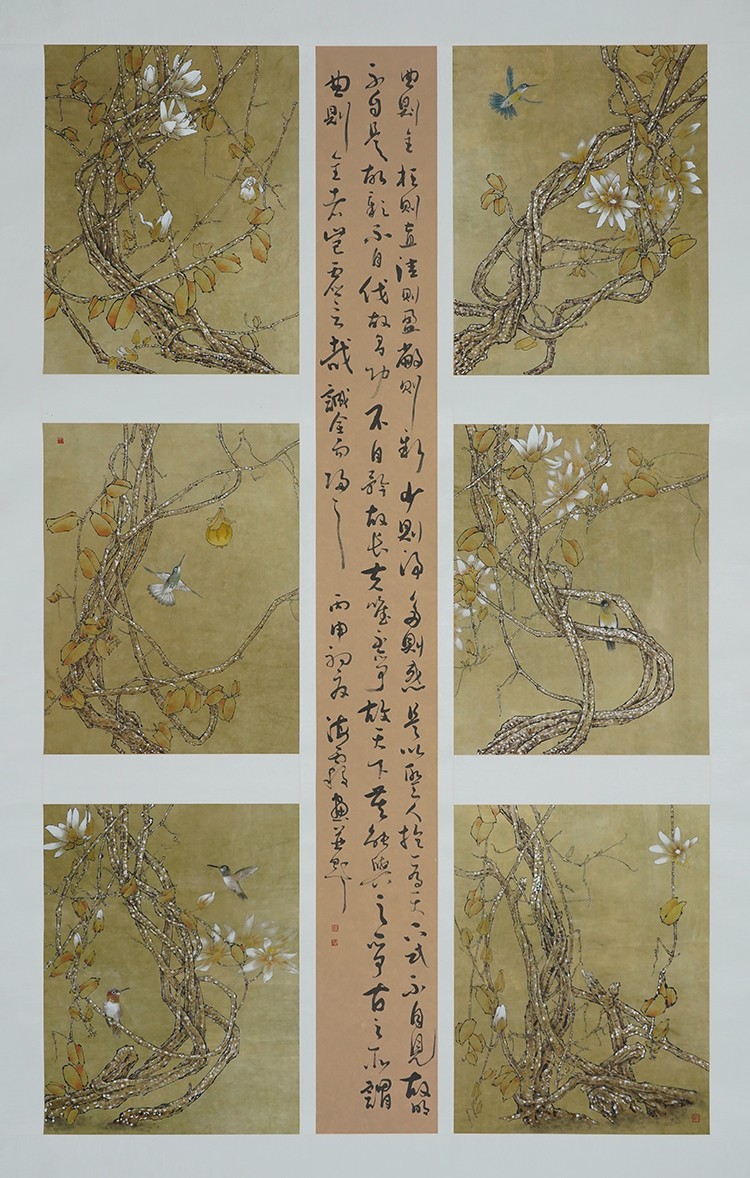 曲則全枉則直洼則盈敝則新少則得多則惑是以聖人抱一為天下式不自見故明
不自是故彰不自伐故有功不自矜故長夫唯不爭故天下莫能與之爭古之所謂
曲則全者豈虛言哉誠全而歸之 丙申初夏 海霞畫並題